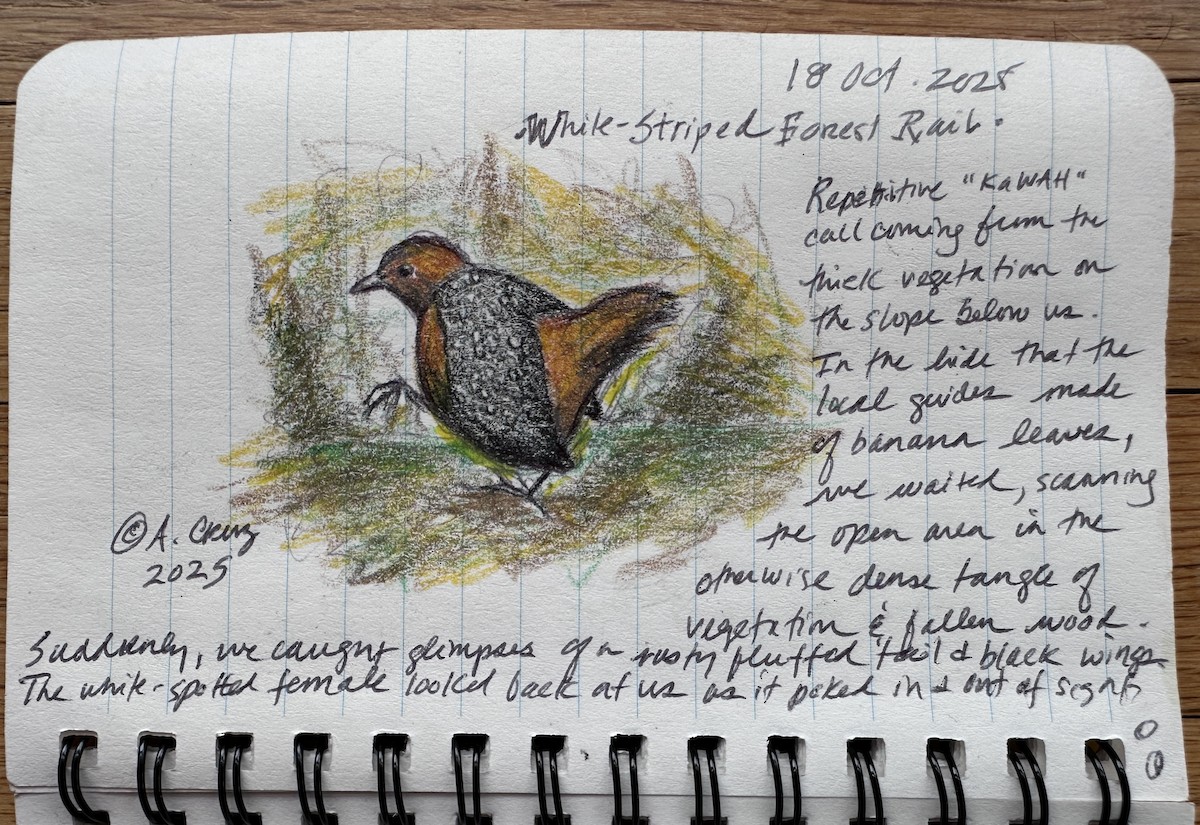 18 Oct. 2025
White-Striped Forest Rail.
Repetitive "KaWAH"
call coming from the
thick vegetation on
the slope below us.
In the hide that the
local guides made
of banana leaves,
we waited, scanning
the open area in the
otherwise dense tangle of
vegetation & fallen wood.
Suddenly, we caught glimpses of a rusty fluffed tail & black wings
The white-spotted female looked back at us as it poked in & out of sight
© A. Cruz
2025